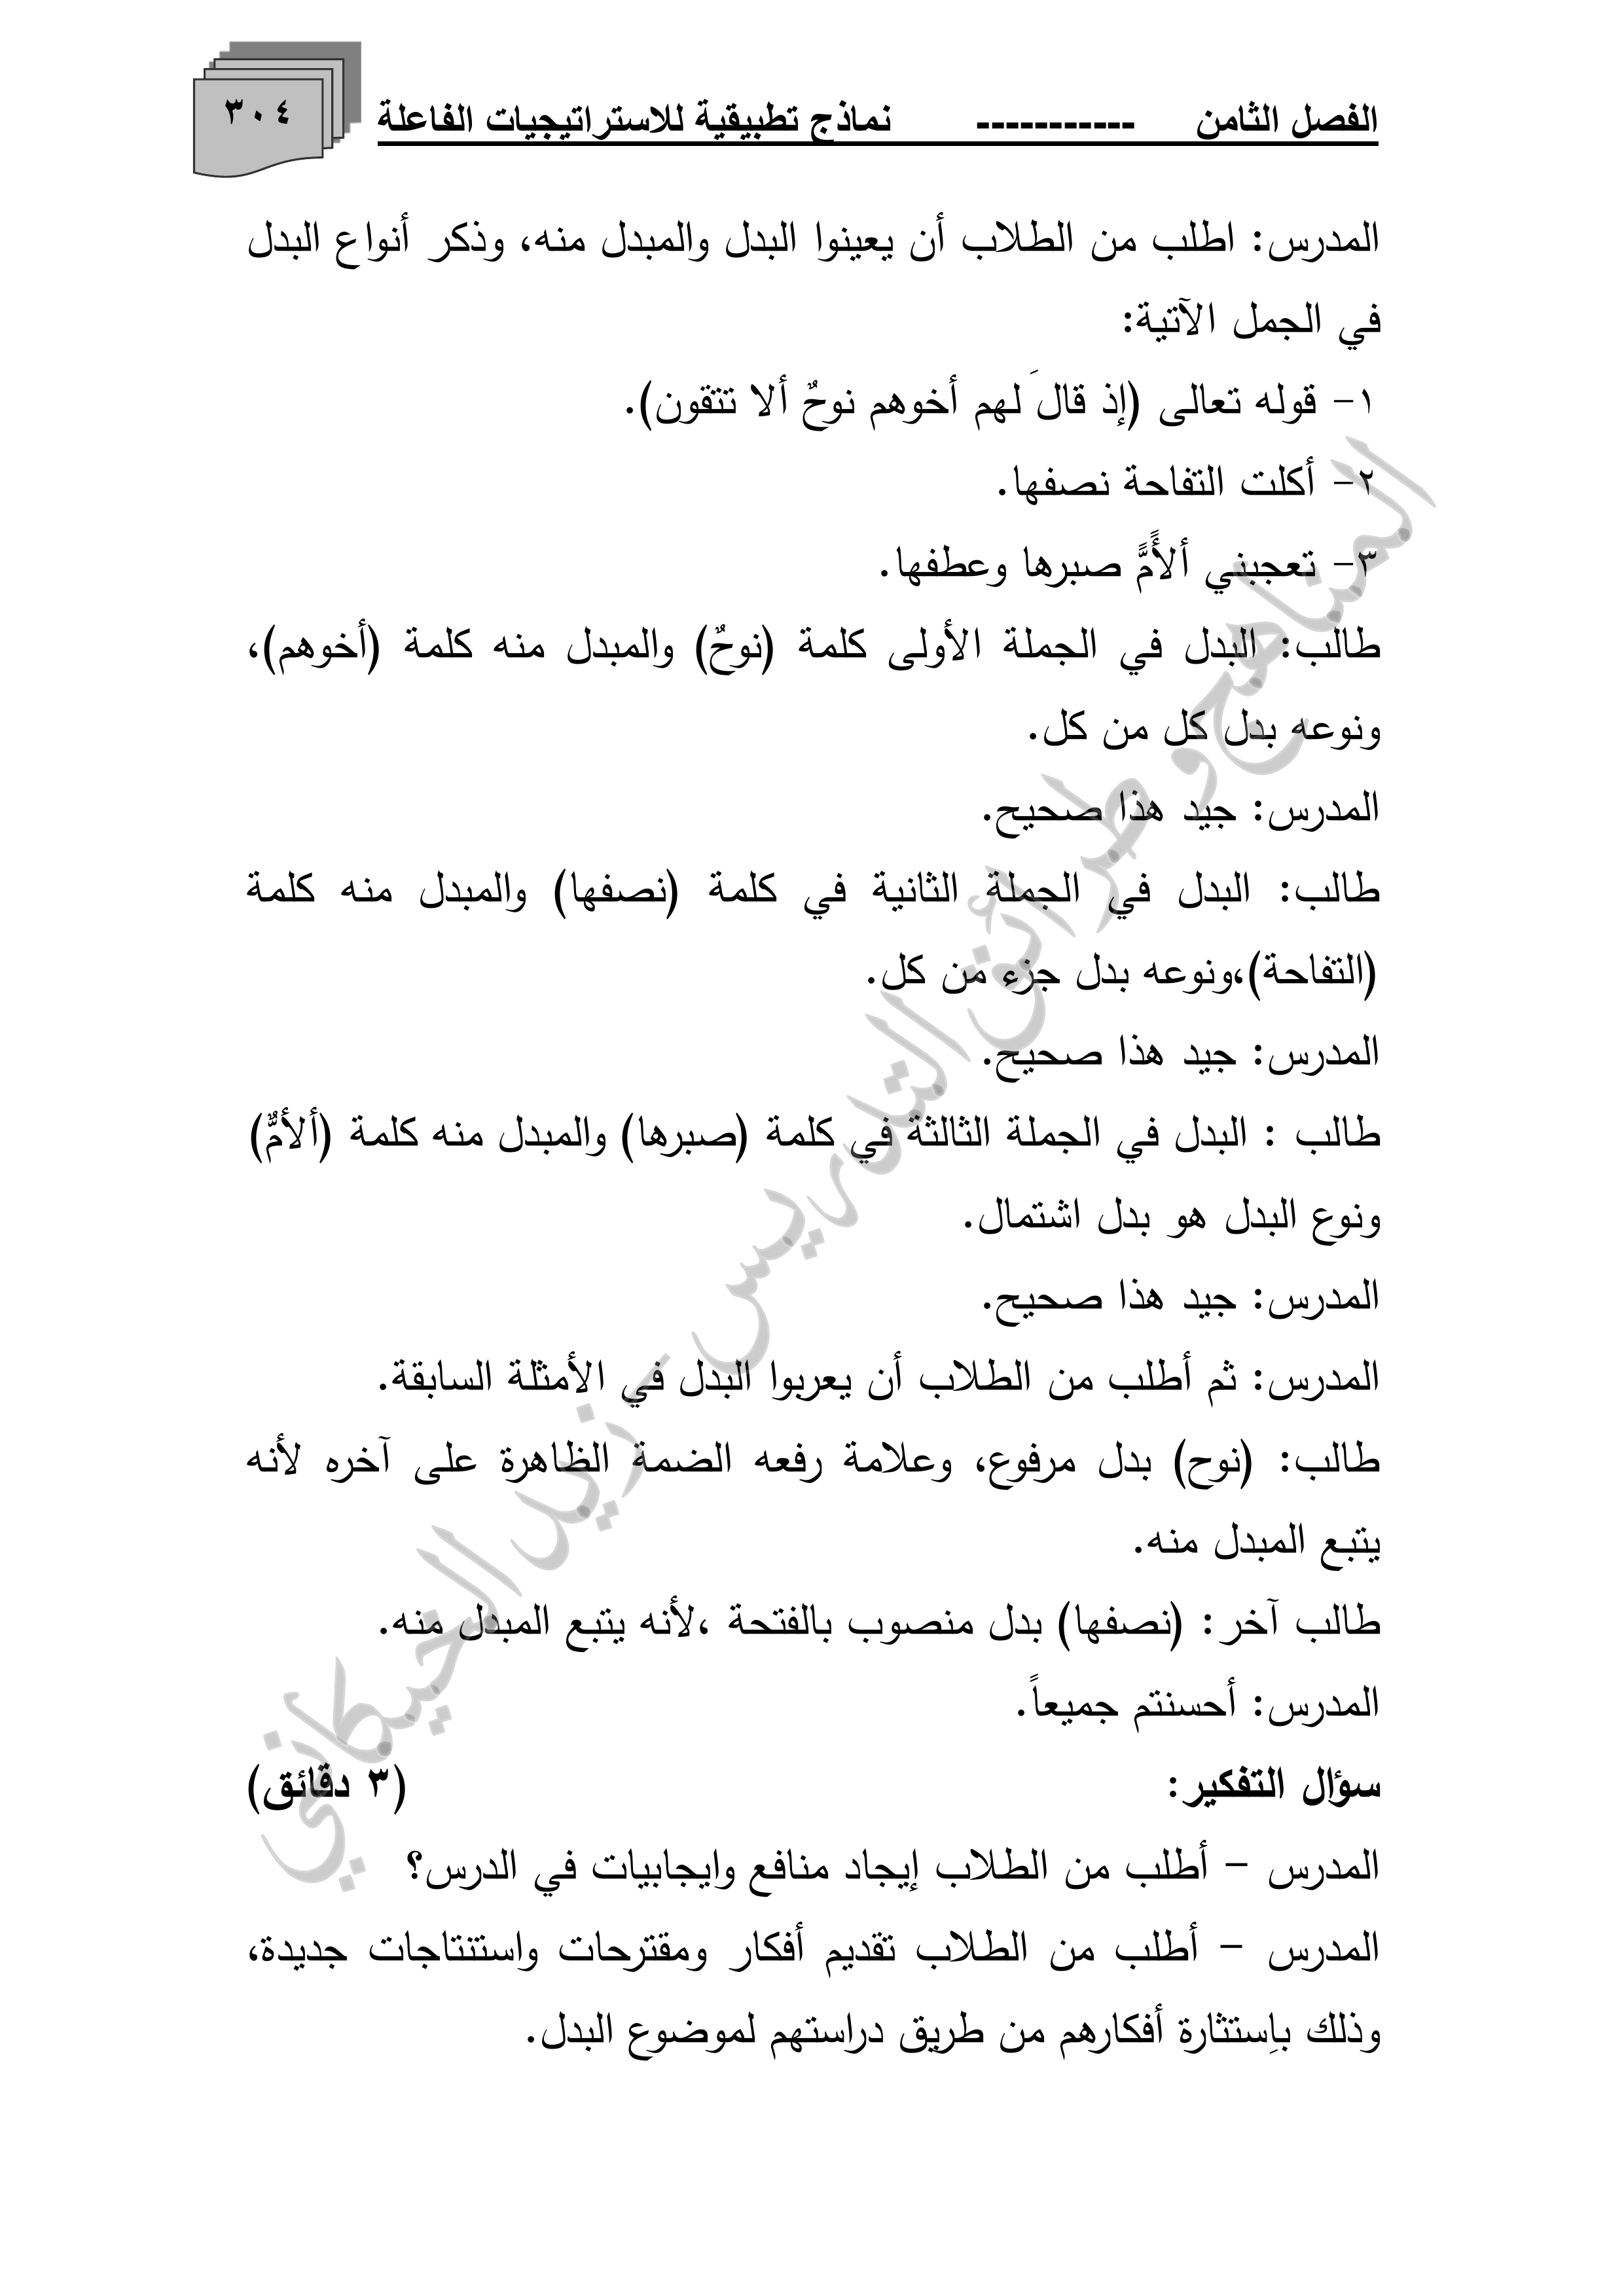 الفصل الثامن ----------- نماذج تطبيقية للاستراتيجيات الفاعلة
٣٠٤
المدرس: اطلب من الطلاب أن يعينوا البدل والمبدل منه، وذكر أنواع البدل
في الجمل الآتية:
١- قوله تعالى (إذ قالَ لهم أخوهم نوحٌ ألا تتقون).
٢- أكلت التفاحة نصفها.
٣- تعجبني ألأًمًّ صبرها وعطفها.
طالب: البدل في الجملة الأولى كلمة (نوحٌ) والمبدل منه كلمة (أخوهم)،
ونوعه بدل كل من كل.
المدرس: جيد هذا صحيح.
طالب: البدل في الجملة الثانية في كلمة (نصفها) والمبدل منه كلمة
(التفاحة)،ونوعه بدل جزء من كل.
المدرس: جيد هذا صحيح.
طالب : البدل في الجملة الثالثة في كلمة (صبرها) والمبدل منه كلمة (ألأمٌّ)
ونوع البدل هو بدل اشتمال.
المدرس: جيد هذا صحيح.
المدرس: ثم أطلب من الطلاب أن يعربوا البدل في الأمثلة السابقة.
طالب: (نوح) بدل مرفوع، وعلامة رفعه الضمة الظاهرة على آخره لأنه
يتبع المبدل منه.
طالب آخر: (نصفها) بدل منصوب بالفتحة ،لأنه يتبع المبدل منه.
المدرس: أحسنتم جميعاً.
سؤال التفكير: (٣ دقائق)
المدرس – أطلب من الطلاب إيجاد منافع وايجابيات في الدرس؟
المدرس – أطلب من الطلاب تقديم أفكار ومقترحات واستنتاجات جديدة،
وذلك بإستثارة أفكارهم من طريق دراستهم لموضوع البدل.
المناهج وطرائق التدريس - زيد الخيكاني